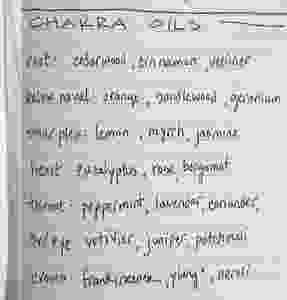 CHAKRA OILS
root: cedarwood, cinnamon, vetiver
navel: orange, sandlewood, geranium
lemon, myrrh, jasmine
heart: eucalyptus, rose, bergamot
throat: peppermint, lavender, coriander,
eye: vetivier, juniper, patchouli
crown: frankincense, ylang², neroli